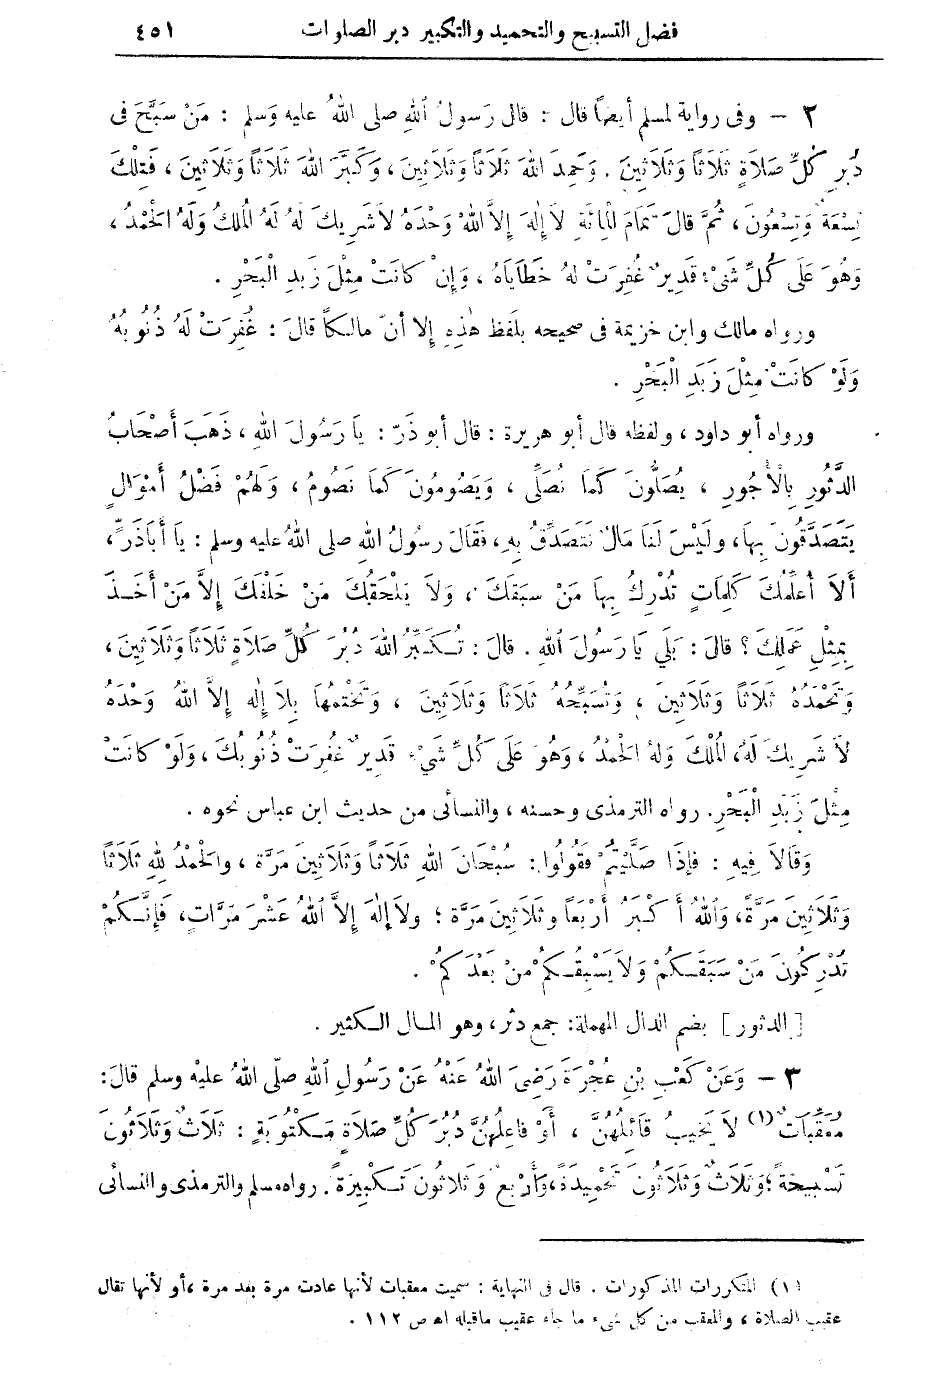 فضل التسبيح والتحميد والتكبير دبر الصلوات ٤٥١
٢ – وفى رواية لمسلم أيضاً قال : قال رَسولُ اللهِ صلى اللهُ عليه وَسلم : مَنْ سَبَّحَ فى
دُبُرِ كُلِّ صَلاَةٍ ثَلاَثاً وَثَلاَثِينَ . وَحَمِدَ اللهَ ثَلاَثاً وَثَلاَثِينَ ، وَكَبَّرَ اللهَ ثَلاَثاً وَثَلاَثِينَ ، فَتِلْكَ
تِسْعَةٌ وَتِسْعُونَ ، ثُمَّ قالَ تَمَامَ الْمِائَةِ لاَ إِلٰهَ إِلاَّ اللهُ وَحْدَهُ لاَ شَرِيكَ لهُ لهُ الْمُلْكُ وَلَهُ الْحَمْدُ ،
وَهُوَ عَلَى كُلِّ شَىْءٍ قَدِيرٌ غُفِرَتْ لهُ خَطَاَيَاهُ ، وَإِنْ كَانَتْ مِثْلَ زَبَدِ الْبَحْرِ .
ورواه مالك وابن خزيمة فى صحيحه بلفظ هٰذِهِ إلا أنّ مالكاً قالَ : غُفِرَتْ لَهُ ذُنُوبُهُ
وَلَوْ كَانَتْ مِثْلَ زَبَدِ الْبَحْرِ .
ورواه أبو داود ، ولفظه قال أبو هريرة : قال أبو ذرّ : يا رَسُولَ اللهِ ، ذَهَبَ أَصْحَابُ
الدُّثُورِ بِالْأُجُورِ ، يُصَلُّونَ كَمَا نُصَلِّى ، وَيَصُومُونَ كَمَا نَصُومُ ، وَلَهُمْ فَضْلُ أَمْوَالٍ
يَتَصَدَّقُونَ بِهاَ ، ولَيْسَ لَنَا مَالٌ نَتَصَدَّقُ بِهِ ، فَقَالَ رسُولُ اللهِ صلى اللهُ عليه وسلم : يا أَباَذَرٍّ ،
أَلاَ أُعَلِّمُكَ كَلِمَاتٍ تُدْرِكُ بِهاَ مَنْ سَبَقَكَ ، وَلاَ يَلْحَقُكَ مَنْ خَلْفَكَ إِلاَّ مَنْ أَخَذَ
بِمِثْلِ عَمَلِكَ ؟ قالَ : بَلَى يَا رَسُولَ اللهِ . قالَ : تُكَبِّرُ اللهَ دُبُرَ كُلِّ صَلاَةٍ ثَلاَثاً وَثَلاَثِينَ ،
وَتَحْمَدُهُ ثَلاَثاً وَثَلاَثِينَ ، وَتُسَبِّحُهُ ثَلاَثاً وَثَلاَثِينَ ، وَتَخْتِمُهَا بِلاَ إِلٰهَ إِلاَّ اللهُ وَحْدَهُ
لاَ شَرِيكَ لَهُ ، لَهُ الْمُلْكُ وَلهُ الْحَمْدُ ، وَهُوَ عَلَى كُلِّ شَىْءٍ قَدِيرٌ غُفِرَتْ ذُنُوبُكَ ، وَلَوْ كَانَتْ
مِثْلَ زَبَدِ الْبَحْرِ . رواه الترمذى وحسنه ، والنسائى من حديث ابن عباس نحوه .
وَقَالاَ فِيهِ : فَإِذَا صَلَّيْتُمْ فَقُولُوا : سُبْحَانَ اللهِ ثَلاَثاً وَثَلاَثِينَ مَرَّةً ، والْحَمْدُ لِلهِ ثَلاَثاً
وَثَلاَثِينَ مَرَّةً ، وَاللهُ أَكْبَرُ أَرْبَعاً وثَلاَثِينَ مَرَّةً ؛ ولاَ إِلٰهَ إِلاَّ اللهُ عَشْرَ مَرَّاتٍ ، فَإِنَّكُمْ
تُدْرِكُونَ مَنْ سَبَقَكُمْ وَلاَ يَسْبِقُكُمْ مَنْ بَعْدَكُمْ .
[ الدثور ] بضم الدال المهملة : جمع دثر ، وهو المال الكثير .
٣ – وَعَنْ كَعْبِ بْنِ عُجْرَةَ رَضِىَ اللهُ عَنْهُ عَنْ رَسُولِ اللهِ صلّى اللهُ عليْه وسلم قالَ :
مُعَقِّبَاتٌ (١) لاَ يَخِيبُ قَائِلُهُنَّ ، أَوْ فَاعِلُهُنَّ دُبُرَ كُلِّ صَلاَةٍ مَكْتُوبَةٍ : ثَلاَثٌ وَثَلاَثُونَ
تَسْبِيحَةً ؛ وَثَلاَثٌ وَثَلاَثُونَ تَحْمِيدَةً ، وَأَرْبَعٌ وَثَلاَثُونَ تَكْبِيرَةً . رواه مسلم والترمذى والنسائى
(١) المتكررات المذكورات . قال فى النهاية : سميت معقبات لأنها عادت مرة بعد مرة ، أو لأنها تقال
عقيب الصلاة ، والمعقب من كل شىء ما جاء عقيب ماقبله اه ص ١١٢ .